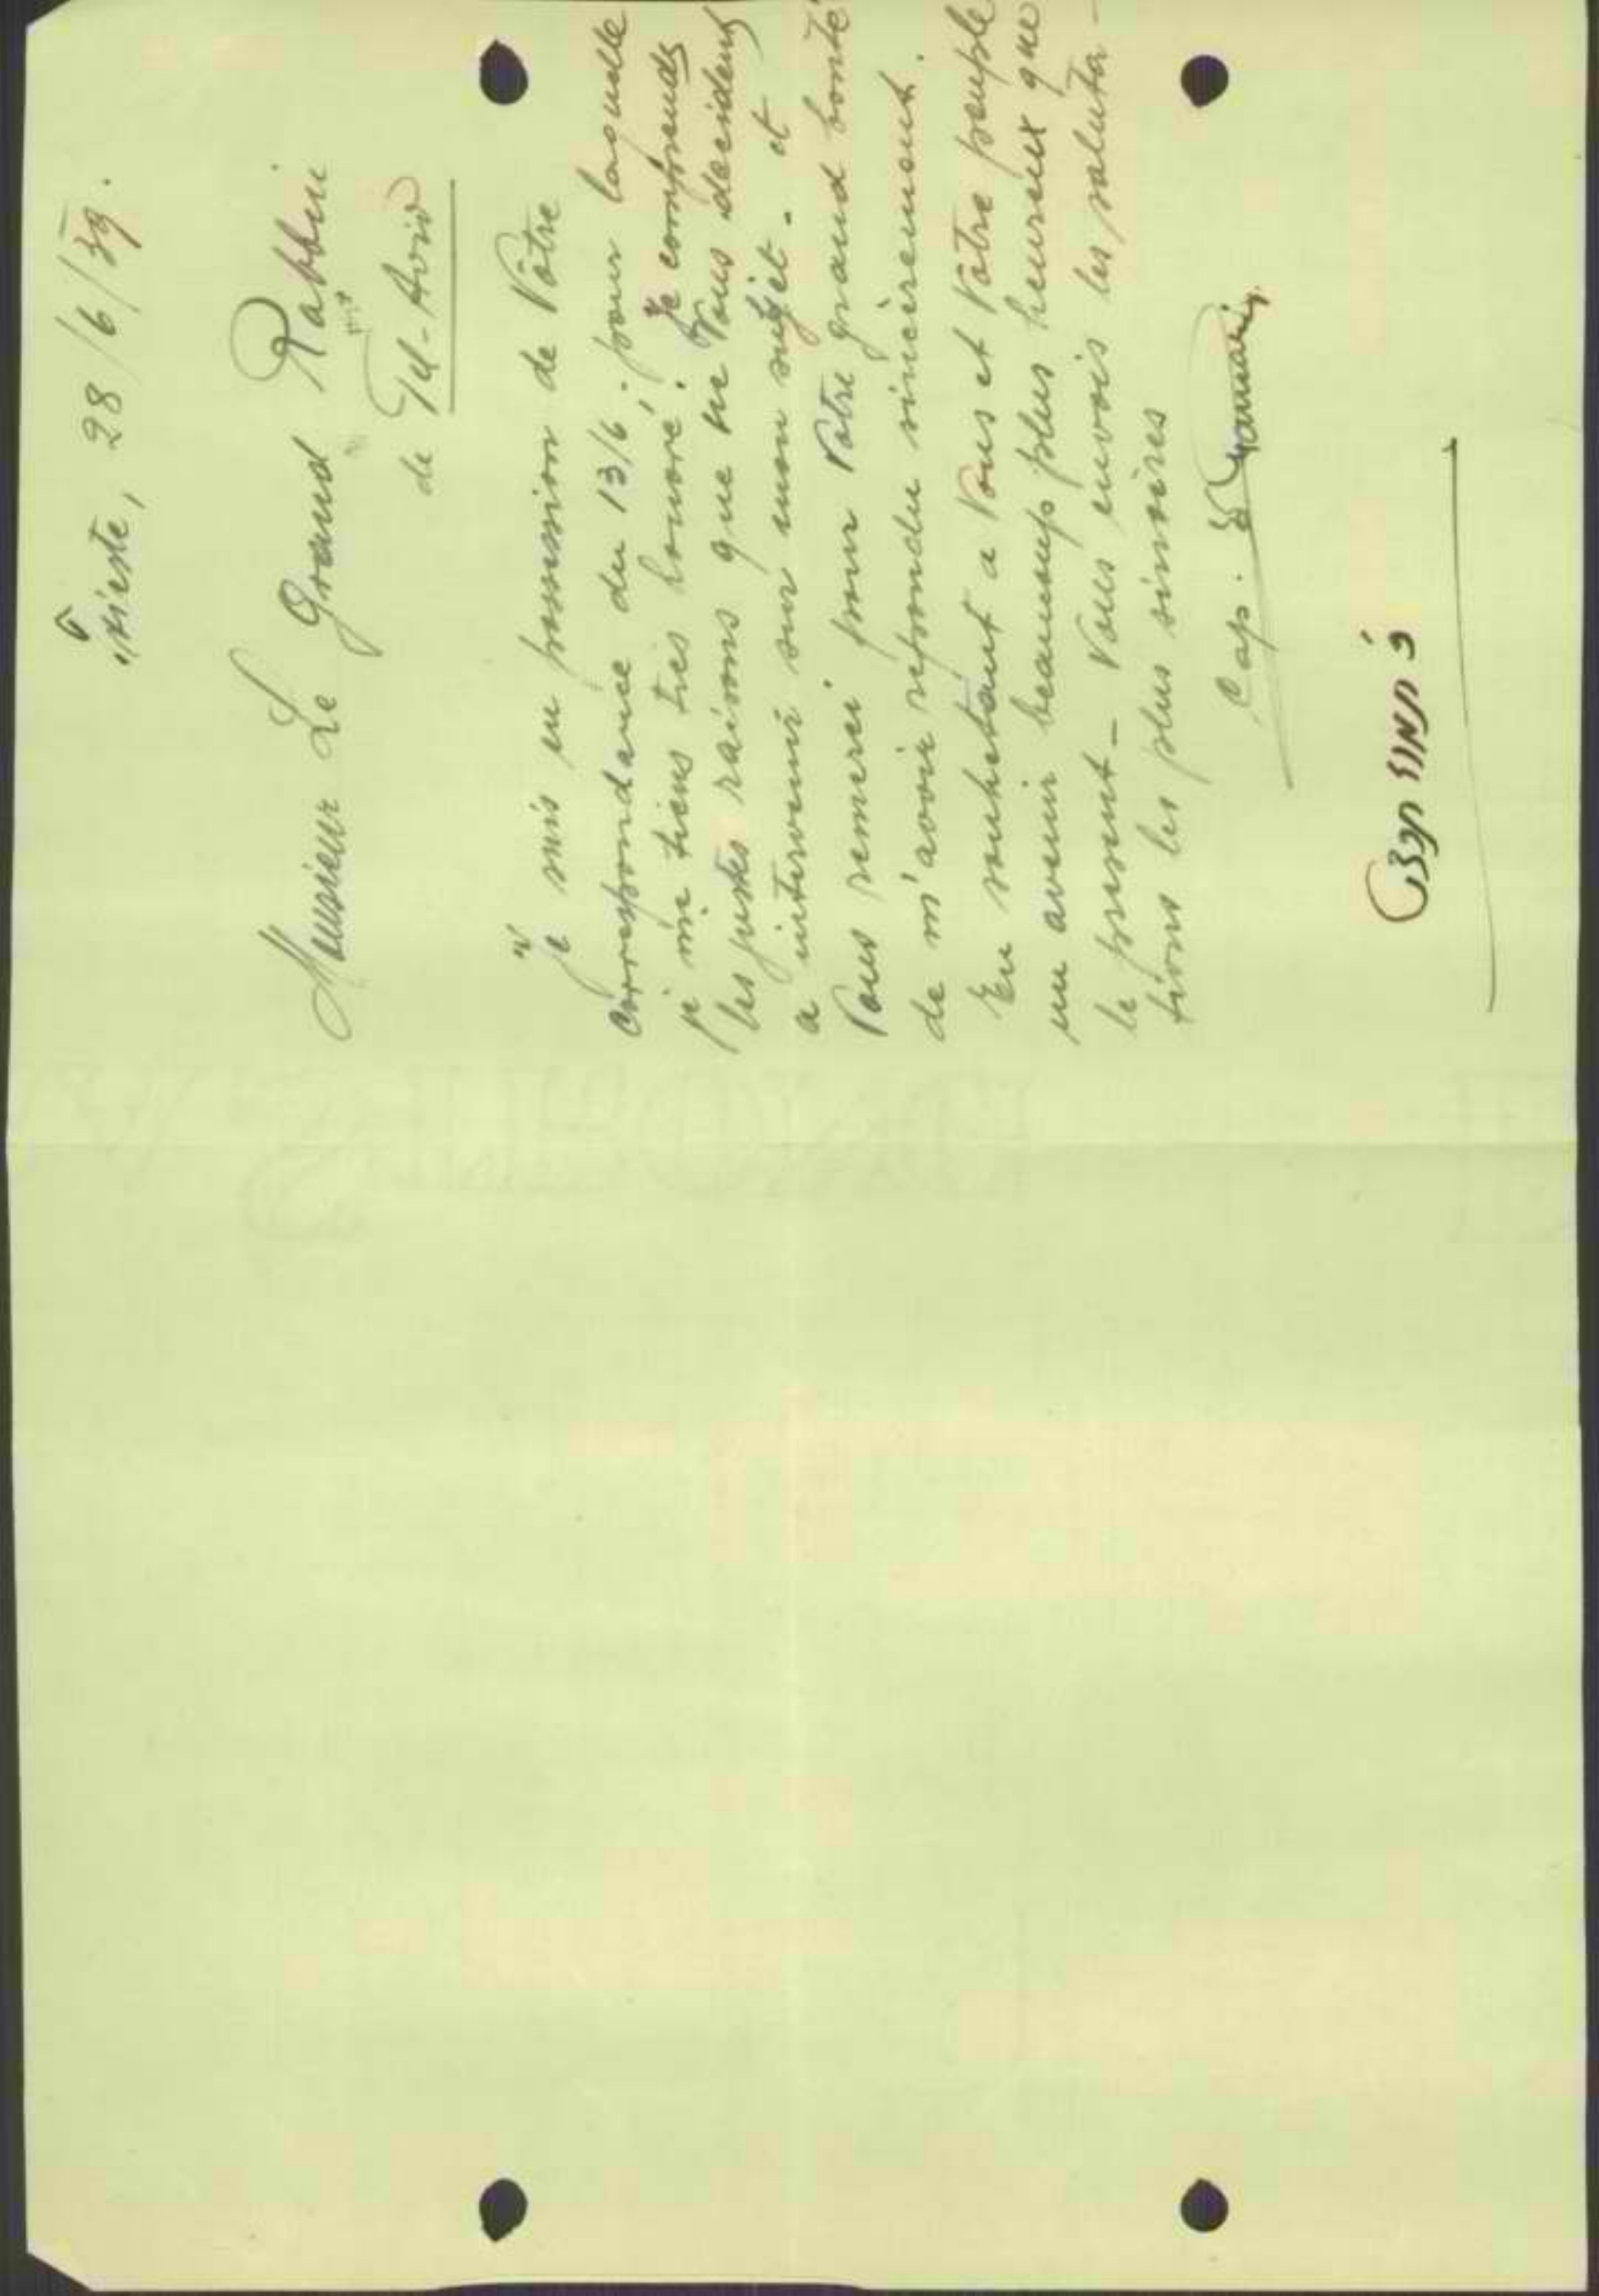 Trieste, 28/6/39.
Monsieur Le Grand Rabbin
de Tel-Aviv
Je suis en possession de Vôtre
correspondance du 13/6. pour laquelle
je me tiens très honoré. Je comprends
les justes raisons que ne Vous decident
a intervenir sur mon sujet. et
Vous remerci pour Vôtre grand bonté
de m'avoir repondu sincèrement.
En souhetant a Vous et Vôtre peuple
un avenir beaucoup plus heureux que
le present_ Vous envois les saluta-
tions les plus sincères
Cap.